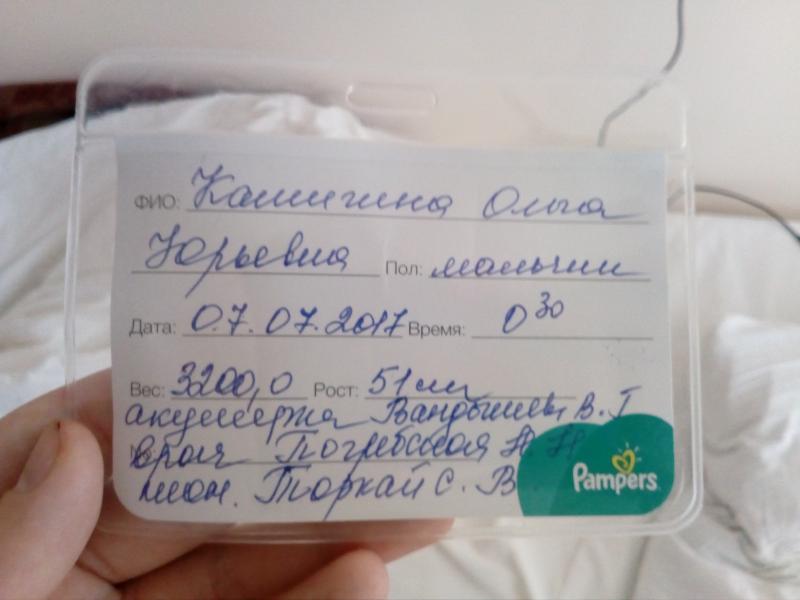 ФИО: Кашигина Ольга
Юрьевна Пол: мальчик
Дата: 07.07.2017 Время: 0 30
Вес: 3200,0 Рост: 51 см
акушерка В. Г
врач Погребская Н. Н
неон. Торкай С. В
Pampers